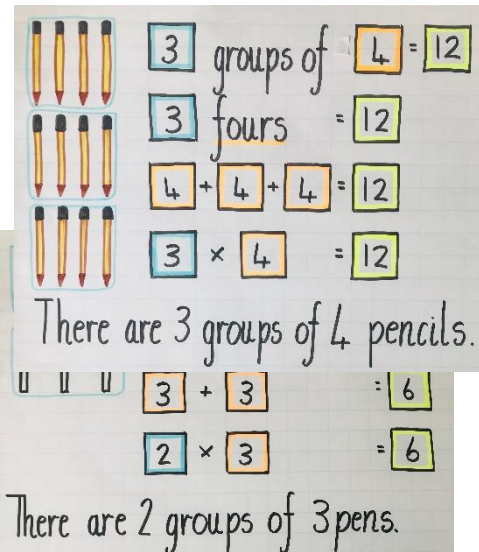 3 groups of 4 = 12
3 fours = 12
4 + 4 + 4 = 12
3 × 4 = 12
There are 3 groups of 4 pencils.
3 + 3 = 6
2 × 3 = 6
There are 2 groups of 3 pens.